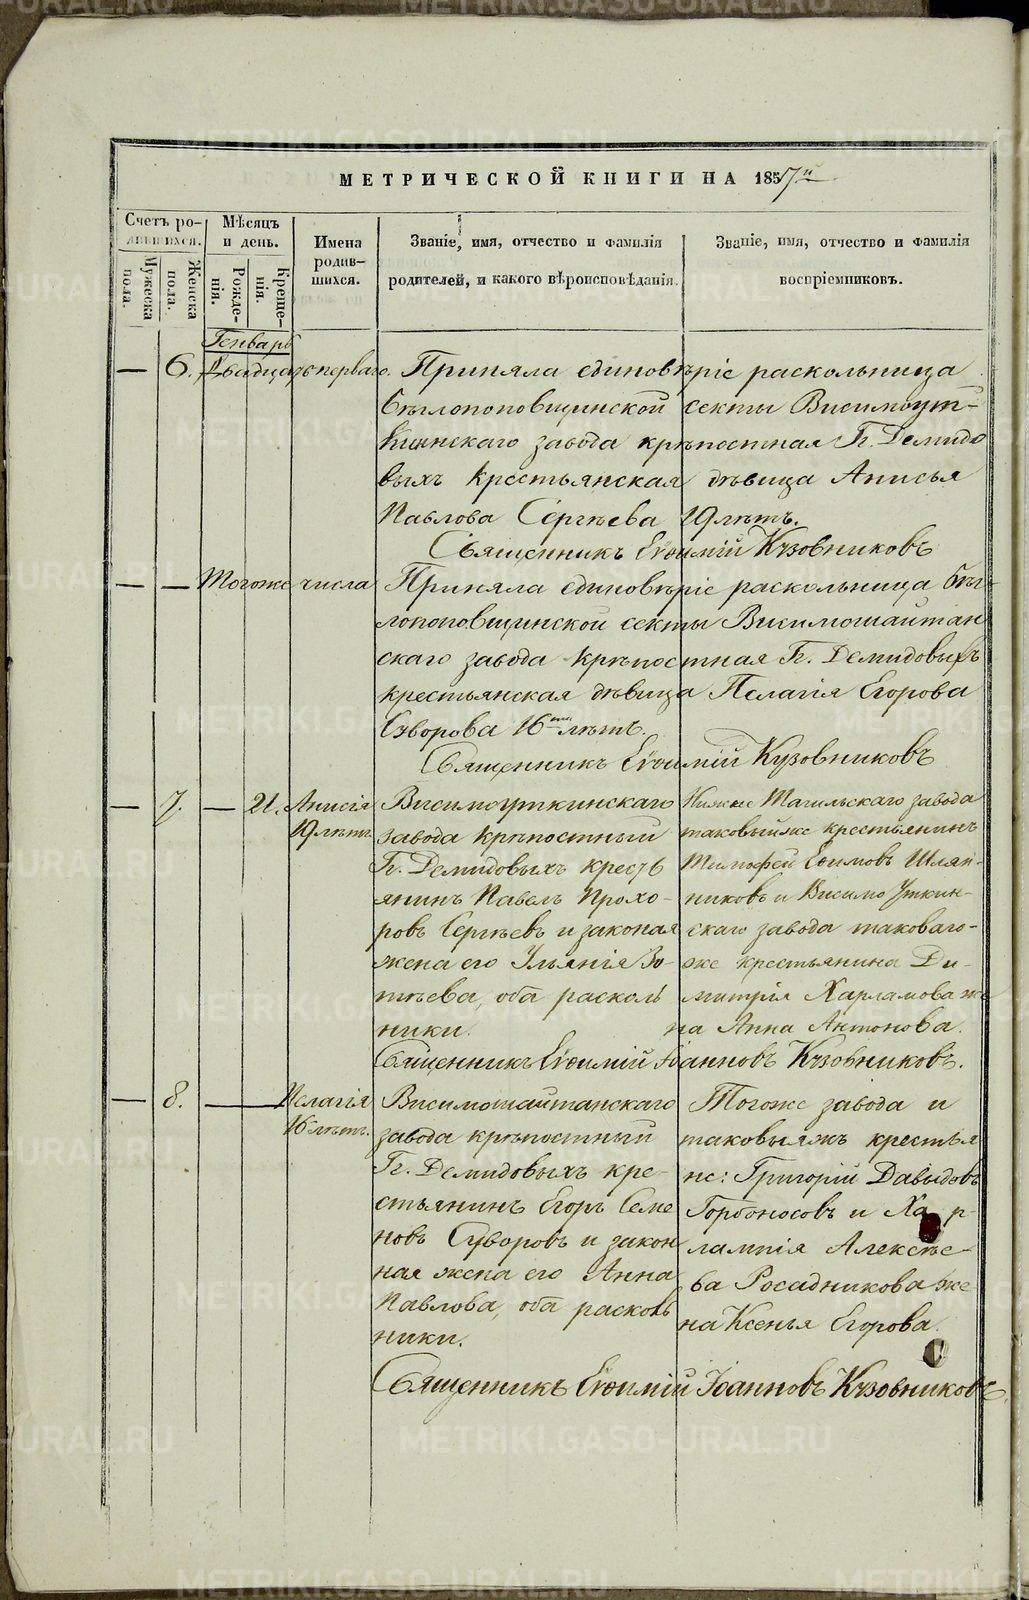 МЕТРИЧЕСКОЙ КНИГИ НА 1857й
Счетъ родившихся.
Мужеска пола.
Женска пола.
Мѣсяцъ и день.
Рожденія.
Крещенія.
Имена родившихся.
Званіе, имя, отчество и фамилія
родителей, и какого вѣроисповѣданія.
Званіе, имя, отчество и фамилія
воспріемниковъ.
Генварь
— 6. Двадцать перваго. Приняла единовѣріе раскольница
бѣглопоповщинской секты Висимоут-
кинскаго завода крѣпостная Гг. Демидо
выхъ крестьянская дѣвица Анисья
Павлова Сергѣева 19 лѣтъ.
Священникъ Евфимій Кузовниковъ
— — Тогоже числа Приняла единовѣріе раскольница бѣг-
лопоповщинской секты Висимошайтан
скаго завода крѣпостная Гг. Демидовыхъ
крестьянская дѣвица Пелагія Егорова
Суворова 16ти лѣтъ.
Священникъ Евфимій Кузовниковъ
— 7. — 21. Анисія
19 лѣтъ
Висимоуткинскаго
завода крѣпостный
Гг. Демидовыхъ кресть
янинъ Павелъ Прохо-
ровъ Сергѣевъ и законая
жена его Ульянія Фо-
тѣева, оба расколь
ники.
Нижне Тагильскаго завода
таковыйже крестьянинъ
Тимофей Ефимовъ Шляп-
никовъ и Висимо Уткин-
скаго завода таковаго-
же крестьянина Ди-
митрія Харламова же
на Анна Антонова.
Священникъ Евфимій Іоанновъ Кузовниковъ.
— 8. — Пелагія
16 лѣтъ.
Висимошайтанскаго
завода крѣпостный
Гг. Демидовыхъ кре-
стьянинъ Егоръ Семе
новъ Суворовъ и закон
ная жена его Анна
Павлова, оба расколь
ники.
Тогоже завода и
таковыяжъ крестья
не: Григорій Давыдовъ
Горбоносовъ и Хар-
лампія Алексѣе-
ва Росадникова же
на Ксенья Егорова.
Священникъ Евфимій Іоанновъ Кузовниковъ.
METRIKI.GASO-URAL.RU